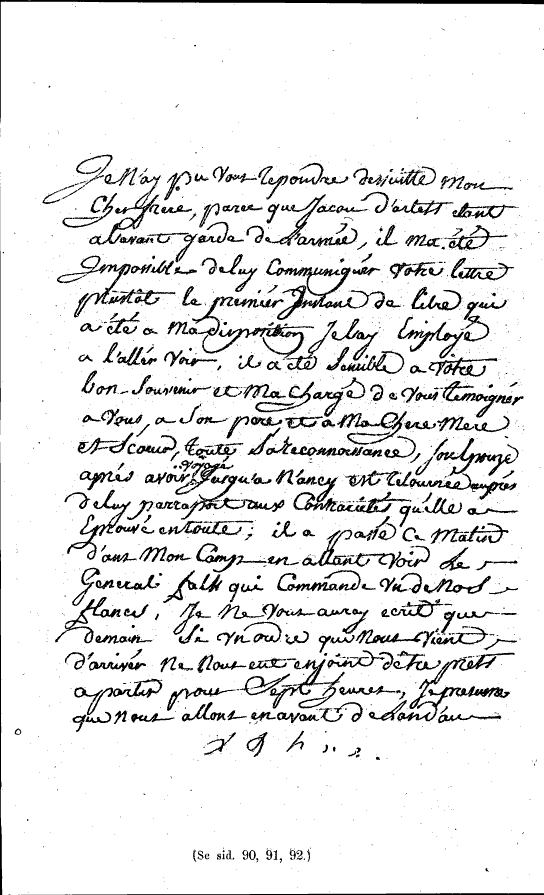 Je N'ay pu Vous repondre desuitte Mon
Cher frere, parce que Jacou d'artets etant
a l'avant garde de L'armée, il ma été
Impossible de luy Communiquér Votre lettre
plustôt le premiér Instant de libre qui
a été a Ma disposition Je l'ay Employé
a l'allér Voir, il a été Sensible a Votre
bon Souvenir et Ma Chargé de Vous temoignér
a Vous, a Son pere et a Ma Chere Mere
et Sœur, toute Sa reconnoissance,
voyagé
aprés avoir Jusqu'a Nancy est retournée auprés
de luy par raport aux Contrarietés qu'elle a
Eprouvé en route; il a passé Ce Matin
d'ans Mon Camp en allant Voir Le
General falk qui Commande Un de Nos
flancs, Je Ne Vous auray ecrit que
demain Si Un ordre qui Nous Vient
d'arrivér Ne Nous eut enjoint d'être prets
a partir pour Sept heures, Je presume
que Nous allons en avant de Landau
(Se sid. 90, 91, 92.)